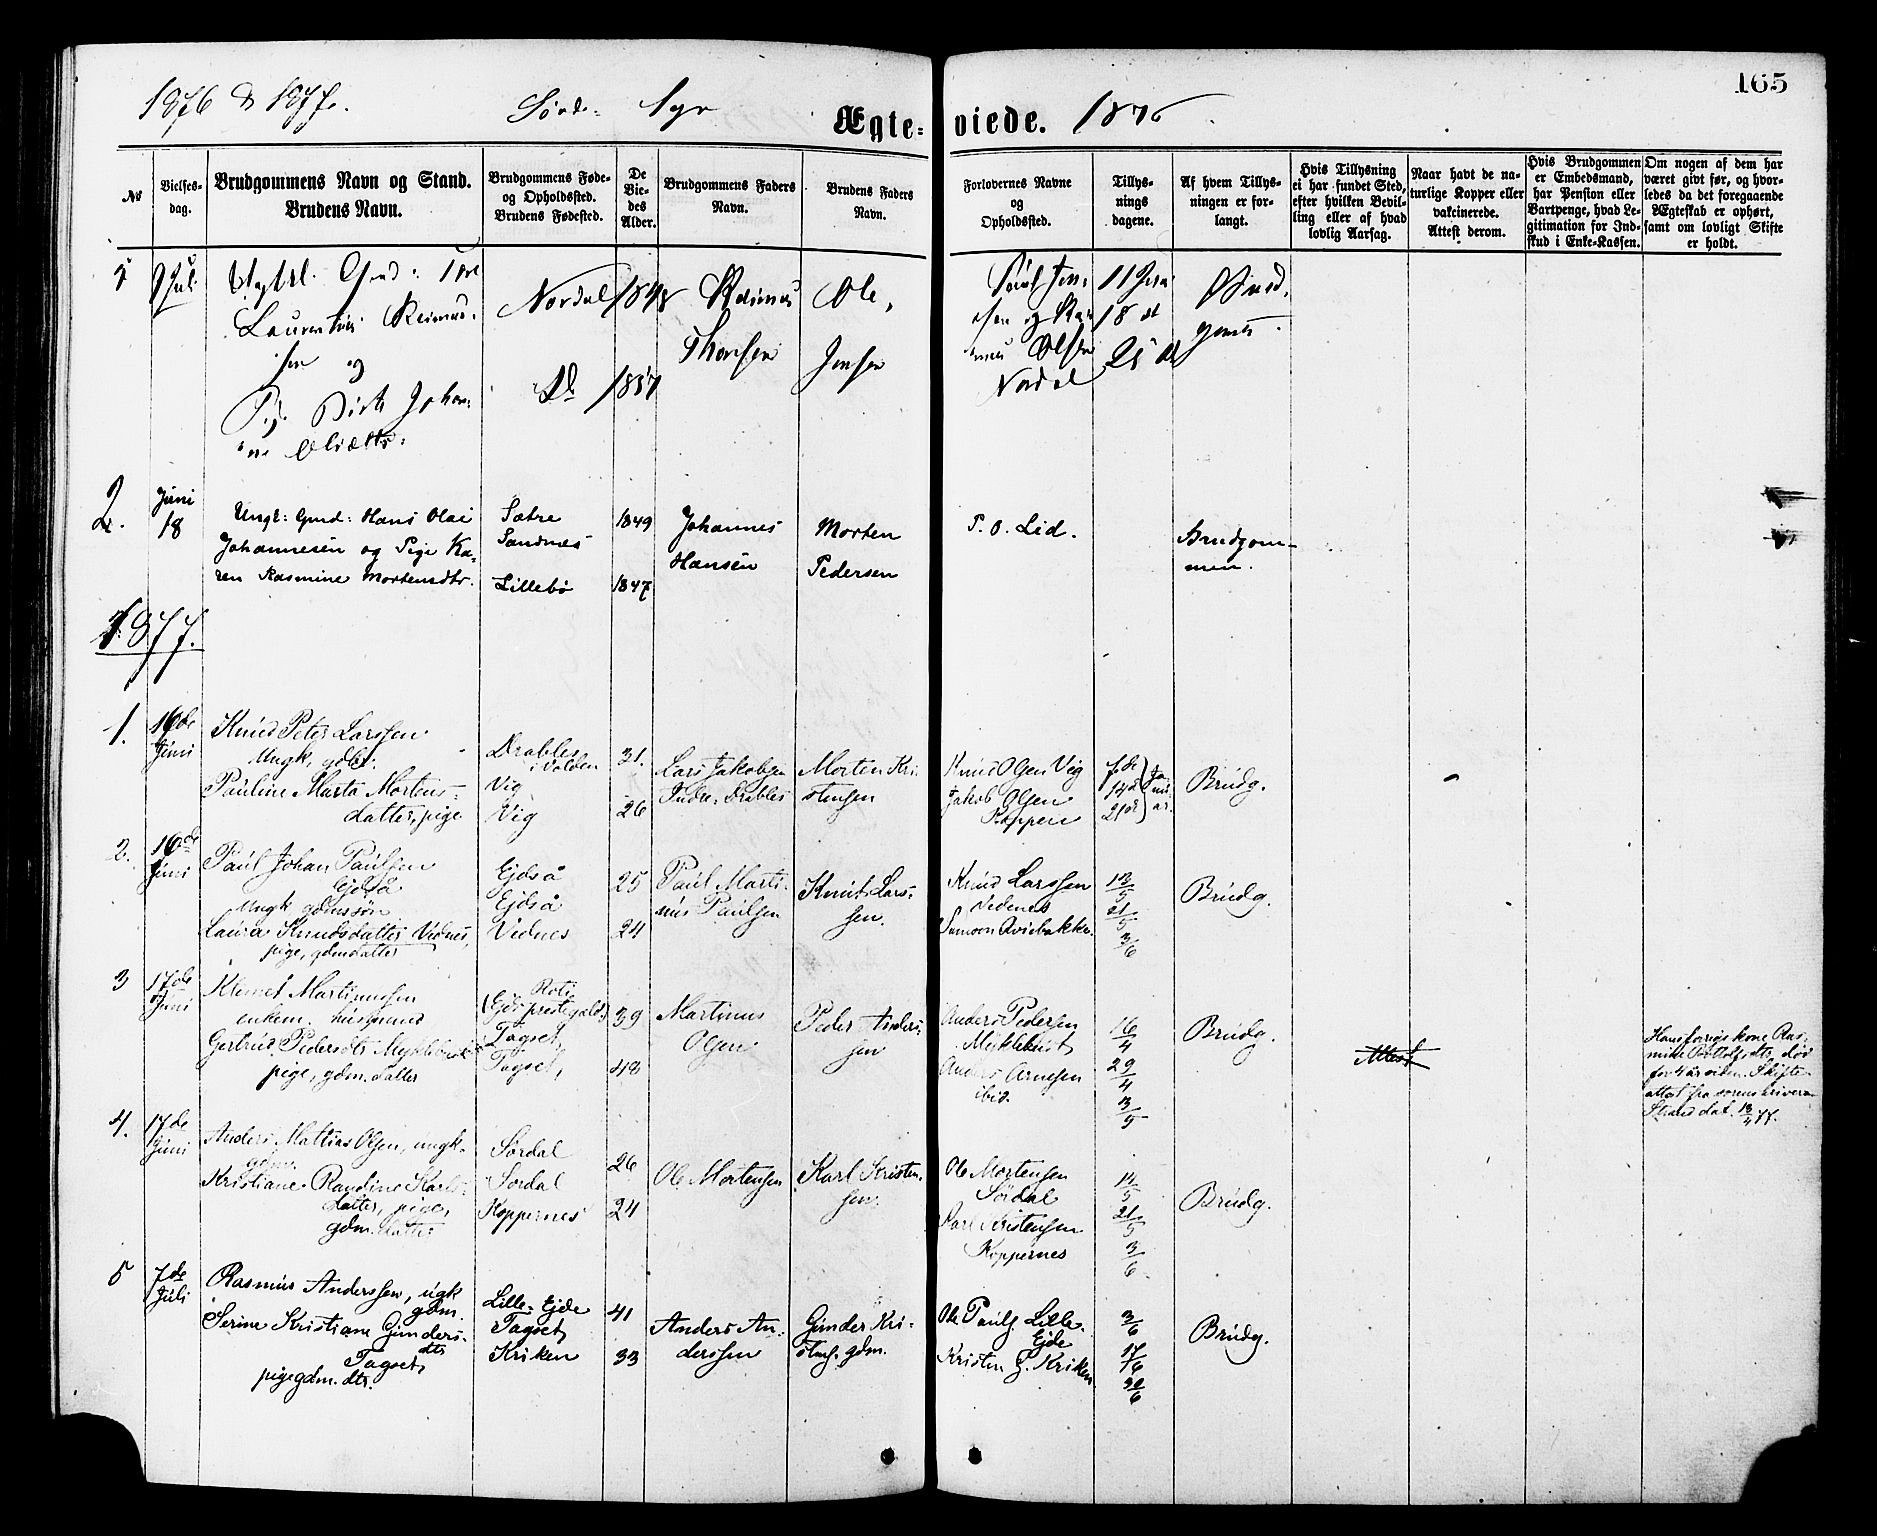 165
1876 & 1877.
Ægte=viede. 1876
No
Vielses-
dag.
Brudgommens Navn og Stand.
Brudens Navn.
Brudgommens Føde-
og Opholdssted.
Brudens Fødested.
De
Vie-
des
Alder.
Brudgommens Faders
Navn.
Brudens Faders
Navn.
Forlovernes Navne
og
Opholdssted.
Tillys-
nings
dagene.
Af hvem Tillys-
ningen er for-
langt.
Hvis Tillysning
ei har fundet Sted,
efter hvilken Bevil-
ling eller af hvad
lovlig Aarsag.
Naar havt de na-
turlige Kopper eller
vakcinerede.
Attest derom.
Hvis Brudgommen
er Embedsmand,
har Pension eller
Vartpenge, hvad Le-
gitimation for Ind-
skud i Enke-Kassen.
Om nogen af dem har
været givt før, og hvor-
ledes da det foregaaende
Ægteskab er ophørt,
samt om lovligt Skifte
er holdt.
Juli
Laurentius Rasmus-
sen og
Nordal
1848
Rasmus
Thorsen
Ole
Jensen
11 Juni
18 d
25 d
Olsen
Nordal
Johan-
1857
2.
Juni
18
Ungk: Gmd: Hans Olai
Johannesen og Pige Ka-
ren Rasmine Mortensdtr.
Sætre
Sandnæs
Lillebø
1849
1847
Johannes
Hansen
Morten
Pedersen
P. O. Lid.
Brudgom-
men.
1877.
1.
16de
Juni
Knud Peter Larssen
Ungk, gdbr.
Pauline Marta Mortens-
datter, pige
Drabløs
i Volden
Vig
Vig
31.
26
Lars Jakobsen
Indre-Drabløs
Morten Kri-
stensen
Knud Olsen Vig
Jakob Olsen
Koppen
7de
14d
21de
Ja-
nu-
ar.
Brudg.
2.
16de
Juni
Paul Johan Paulsen
Ejdså
Ungk gdmssøn
Laura Knudsdatter Vidnes,
pige, gdmdatter
Ejdså
Ejdså
Vidnes
25
24
Paul Marti-
nus Paulsen
Knut Lars-
sen.
Knud Larssen
Vednes
13/5
21/5
3/6
Brudg.
3
17de
Juni
Klemet Martinussen
enkem. husmand
Gertrud Pedersdtr Myklebust
pige, gdm. datter
(Ejds prestegjeld)
Tagset,
Tagset,
39
48
Martinus
Olsen
Peder Anders-
sen
Anders Pedersen
Myklebust
Anders Arnesen
ibid.
16/4
29/4
13/5
Brudg.
Attest
Hans forrige kone Ras-
mine dtr, død
for 4 år siden. Skifte-
attest fra sorenskriveren
Strand dat. 13/4 77.
4.
17de
Juni
Anders Mattias Olsen, ungk.
gdm.
Kristiane Raudine Karls-
datter, pige,
gdm. datter
Sørdal
Sørdal
Koppernes
26
24
Ole Mortensen
Karl Kristen-
sen.
Ole Mortensen
Sørdal
Karl Kristensen
Koppernes
14/5
21/5
3/6
Brudg.
5
7de
Juli
Rasmus Anderssen, ugk
gdm.
Serine Kristiane Gunders-
dtr
Tagset,
pige gdm. dtr.
Lille-Ejde
Tagset
Kriken
41
33
Anders An-
derssen
Gunder Kri-
stens. gdm.
Ole Pauls. Lille-
Ejde
Kristen G. Kriken
3/6
17/6
30/6
Brudg.